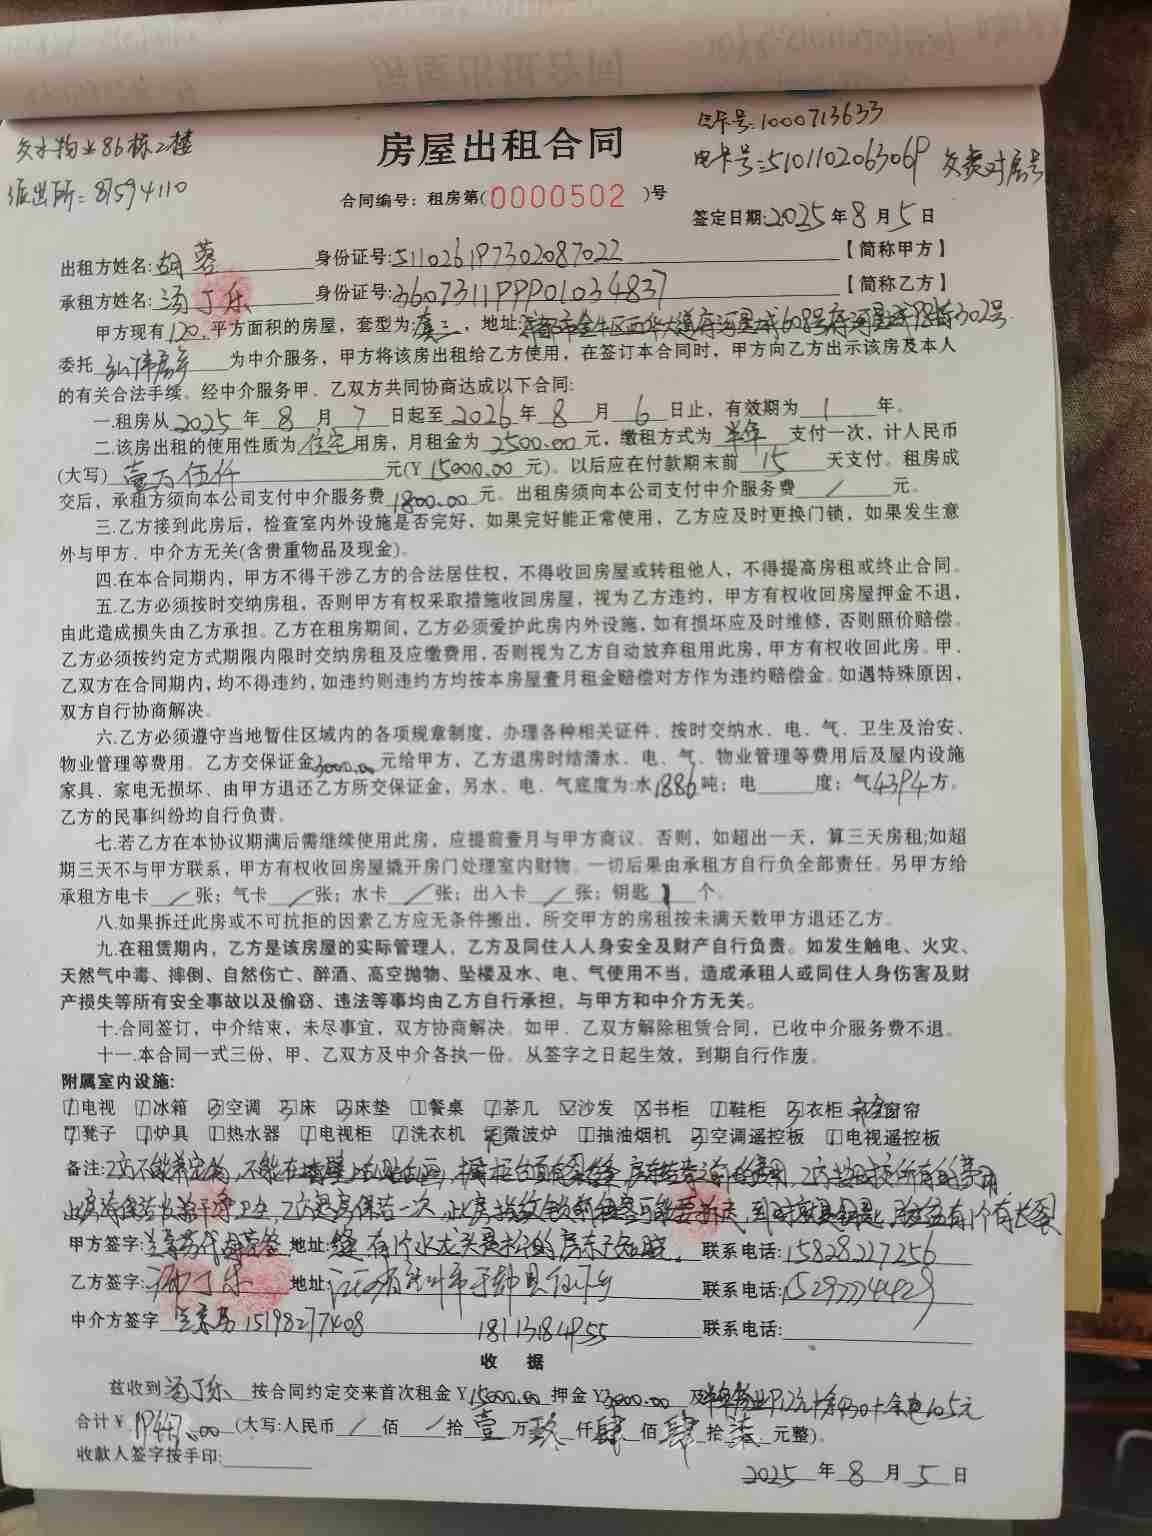 交水物业86栋2楼
派出所：87594110
气卡号：1000713633
电卡号：5101102063069 交费对房号
房屋出租合同
合同编号：租房第(0000502)号
签定日期:2025年8月5日
出租方姓名:胡蓉 身份证号:511026197302087022【简称甲方】
承租方姓名:汤丁乐 身份证号:360731199901034837【简称乙方】
甲方现有120平方面积的房屋，套型为套三，地址:成都市金牛区西华大道府河星城608号府河星城 302号
委托 为中介服务，甲方将该房出租给乙方使用，在签订本合同时，甲方向乙方出示该房及本人
的有关合法手续。经中介服务甲、乙双方共同协商达成以下合同:
一.租房从2025年8月7日起至2026年8月6日止，有效期为1年。
二.该房出租的使用性质为住宅用房，月租金为2500.00元，缴租方式为半年支付一次，计人民币
(大写)壹万伍仟元(Y 15000.00元)。以后应在付款期末前15天支付。租房成
交后，承租方须向本公司支付中介服务费1800.00元。出租房须向本公司支付中介服务费/元。
三.乙方接到此房后，检查室内外设施是否完好，如果完好能正常使用，乙方应及时更换门锁，如果发生意
外与甲方、中介方无关(含贵重物品及现金)。
四.在本合同期内，甲方不得干涉乙方的合法居住权，不得收回房屋或转租他人，不得提高房租或终止合同。
五.乙方必须按时交纳房租，否则甲方有权采取措施收回房屋，视为乙方违约，甲方有权收回房屋押金不退，
由此造成损失由乙方承担。乙方在租房期间，乙方必须爱护此房内外设施，如有损坏应及时维修，否则照价赔偿。
乙方必须按约定方式期限内限时交纳房租及应缴费用，否则视为乙方自动放弃租用此房，甲方有权收回此房。甲、
乙双方在合同期内，均不得违约，如违约则违约方均按本房屋壹月租金赔偿对方作为违约赔偿金。如遇特殊原因，
双方自行协商解决。
六.乙方必须遵守当地暂住区域内的各项规章制度，办理各种相关证件、按时交纳水、电、气、卫生及治安、
物业管理等费用。乙方交保证金3000.00元给甲方，乙方退房时结清水、电、气、物业管理等费用后及屋内设施
家具、家电无损坏、由甲方退还乙方所交保证金，另水、电、气底度为:水1886吨；电 度；气4394方。
乙方的民事纠纷均自行负责。
七.若乙方在本协议期满后需继续使用此房，应提前壹月与甲方商议。否则，如超出一天，算三天房租;如超
期三天不与甲方联系，甲方有权收回房屋撬开房门处理室内财物。一切后果由承租方自行负全部责任。另甲方给
承租方电卡/张；气卡/张；水卡/张；出入卡/张；钥匙1个。
八.如果拆迁此房或不可抗拒的因素乙方应无条件搬出，所交甲方的房租按未满天数甲方退还乙方。
九.在租赁期内，乙方是该房屋的实际管理人，乙方及同住人人身安全及财产自行负责。如发生触电、火灾、
天然气中毒、摔倒、自然伤亡、醉酒、高空抛物、坠楼及水、电、气使用不当，造成承租人或同住人身伤害及财
产损失等所有安全事故以及偷窃、违法等事均由乙方自行承担，与甲方和中介方无关。
十.合同签订，中介结束，未尽事宜，双方协商解决。如甲、乙双方解除租赁合同，已收中介服务费不退。
十一.本合同一式三份，甲、乙双方及中介各执一份。从签字之日起生效，到期自行作废。
附属室内设施:
电视 冰箱 空调 床 床垫 餐桌 茶几 沙发 书柜 鞋柜 衣柜 窗帘
凳子 炉具 热水器 电视柜 洗衣机 微波炉 抽油烟机 空调遥控板 电视遥控板
备注:乙方不能养宠物，不能在墙壁上乱贴乱画，
此房清保洁 干净卫生，乙方退房保洁一次，此房指纹锁 有1个有长裂
甲方签字: 地址:缝，有1个水龙头是拆的房东已知晓。 联系电话:15828227256
乙方签字:汤丁乐 地址:江西省赣州市于都县 联系电话:15297744429
中介方签字 15198277408 18113184955 联系电话:
收 据
兹收到汤丁乐按合同约定交来首次租金Y15000.00押金Y3000.00及
合计¥19447.00(大写:人民币/佰/拾壹万玖仟肆佰肆拾柒元整)。
收款人签字按手印:
2025年8月5日